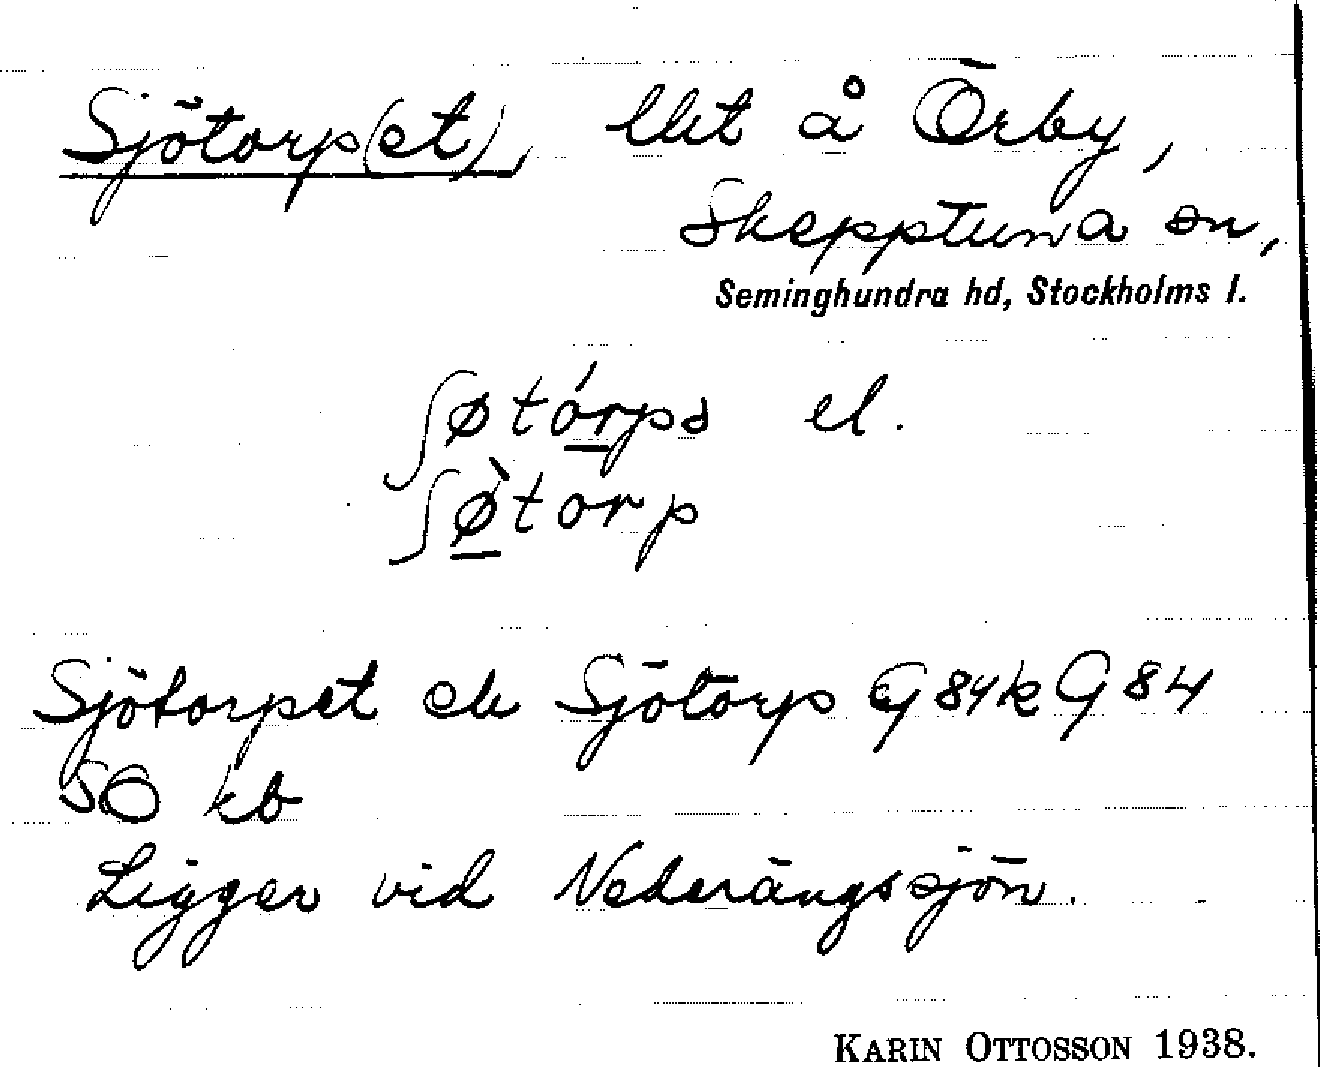 Sjötorp(et), lht å Örby,
Skepptuna sn,
Seminghundra hd, Stockholms l.
ʃøtórpə el.
ʃø̀torp
Sjötorpet el. Sjötorp G 84 k G 84
56 kb
Ligger vid Nederängssjön.
KARIN OTTOSSON 1938.